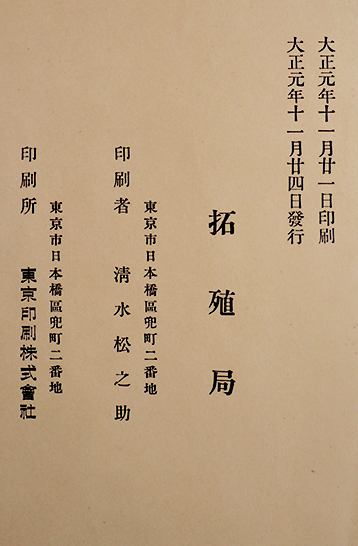 大正元年十一月廿一日印刷
大正元年十一月廿四日發行
拓殖局
東京市日本橋區兜町二番地
印刷者 清水松之助
東京市日本橋區兜町二番地
印刷所 東京印刷株式會社